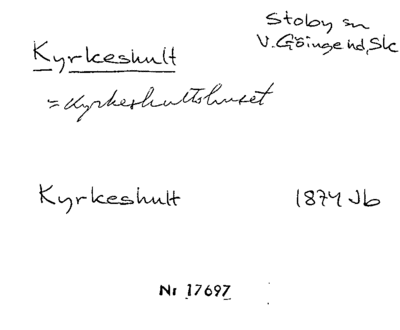 Stoby sn
Kyrkeshult V. Göinge hd, Sk
= Kyrkeshultshuset
Kyrkeshult 1874 Jb
Nr 17697